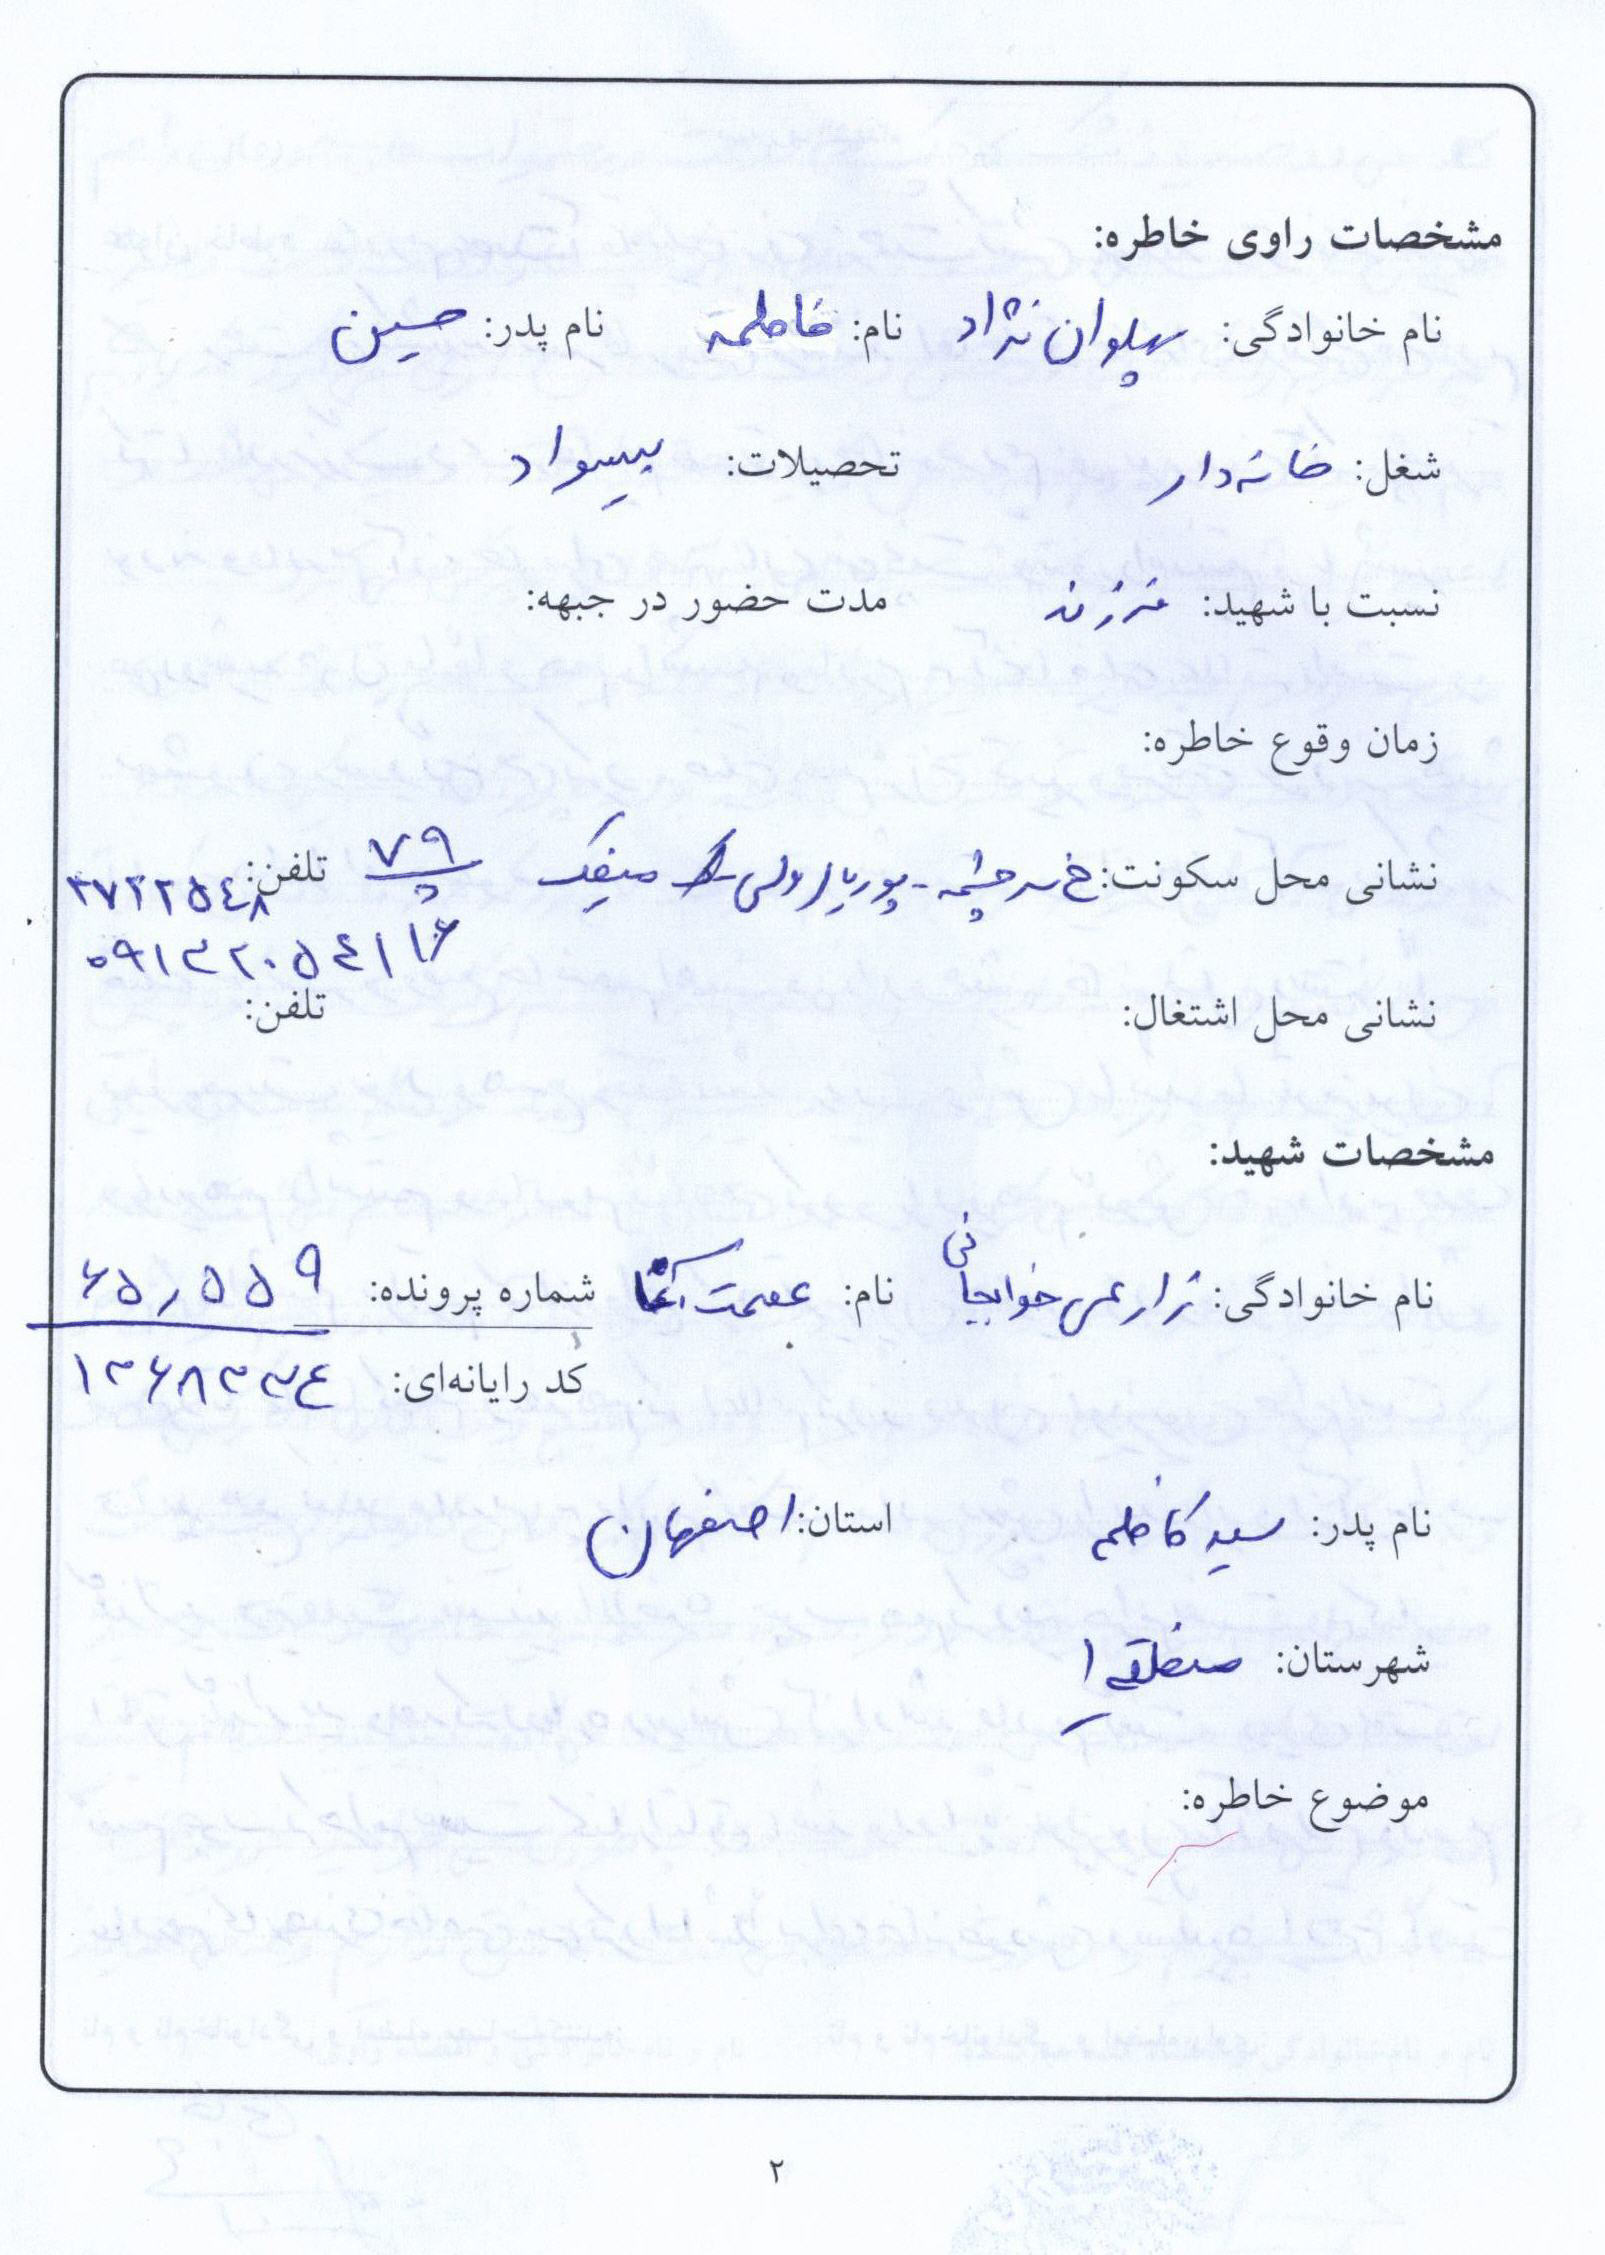 مشخصات راوی خاطره:
نام خانوادگی: پهلوان نژاد نام: فاطمه نام پدر: حسین
شغل: خانه دار تحصیلات: بیسواد
نسبت با شهید: فرزند مدت حضور در جبهه:
زمان وقوع خاطره:
نشانی محل سکونت: خ سرچشمه - پوریا ولی - میفک پ ۷۹ تلفن: ۳۷۲۲۵۴۸
۰۹۱۳۲۰۵۴۱۱۶
نشانی محل اشتغال: تلفن:
مشخصات شهید:
نام خانوادگی: زارعی خوابجانی نام: عصمت آغا شماره پرونده: ۶۵ر۵۵۹
کد رایانه‌ای: ۱۳۶۸۳۳۴
نام پدر: سید کاظم استان: اصفهان
شهرستان: منطقه ۱
موضوع خاطره:
۲